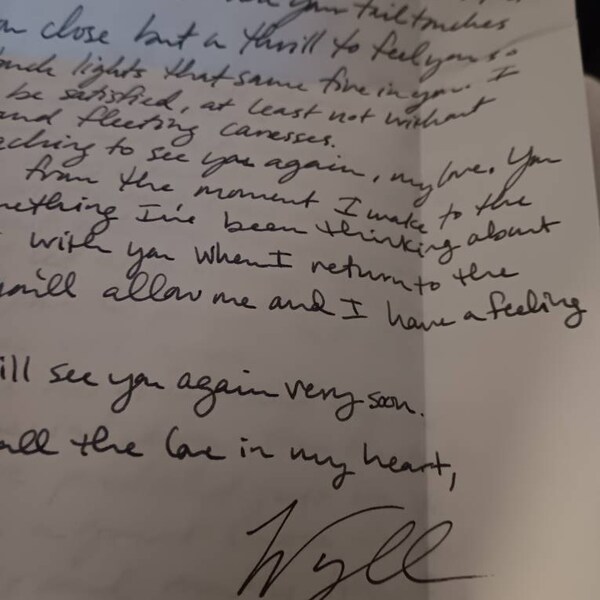 your tail touches
close but a thrill to feel you so
lights that same fire in you. I
be satisfied, at least not without
and fleeting caresses.
aching to see you again, my love. You
from the moment I wake to the
mething I've been thinking about
with you when I return to the
will allow me and I have a feeling
ill see you again very soon.
all the love in my heart,
Wyll